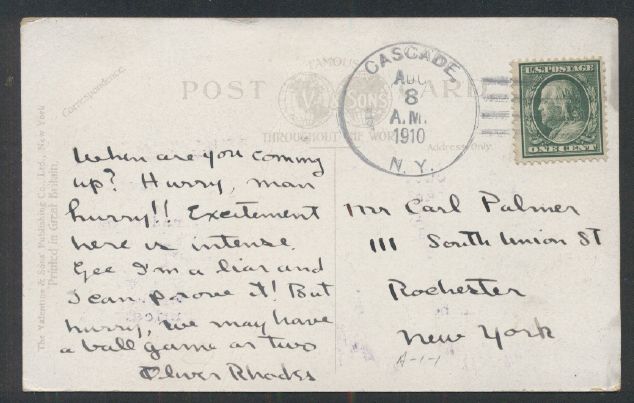 Correspondence.
POST CARD
FAMOUS
V & SONS
THROUGHOUT THE WORLD
Address Only.
CASCADE,
AUG
8
A.M.
1910
N.Y.
U.S. POSTAGE
ONE CENT
The Valentine & Sons' Publishing Co., Ltd., New York
Printed in Great Britain.
When are you coming
up? Hurry, man
hurry!! Excitement
here is intense.
Gee I'm a liar and
I can prove it! But
hurry, we may have
a ball game or two
Oliver Rhodes
Mr Carl Palmer
111 South Union St
Rochester
New York
A-1-1